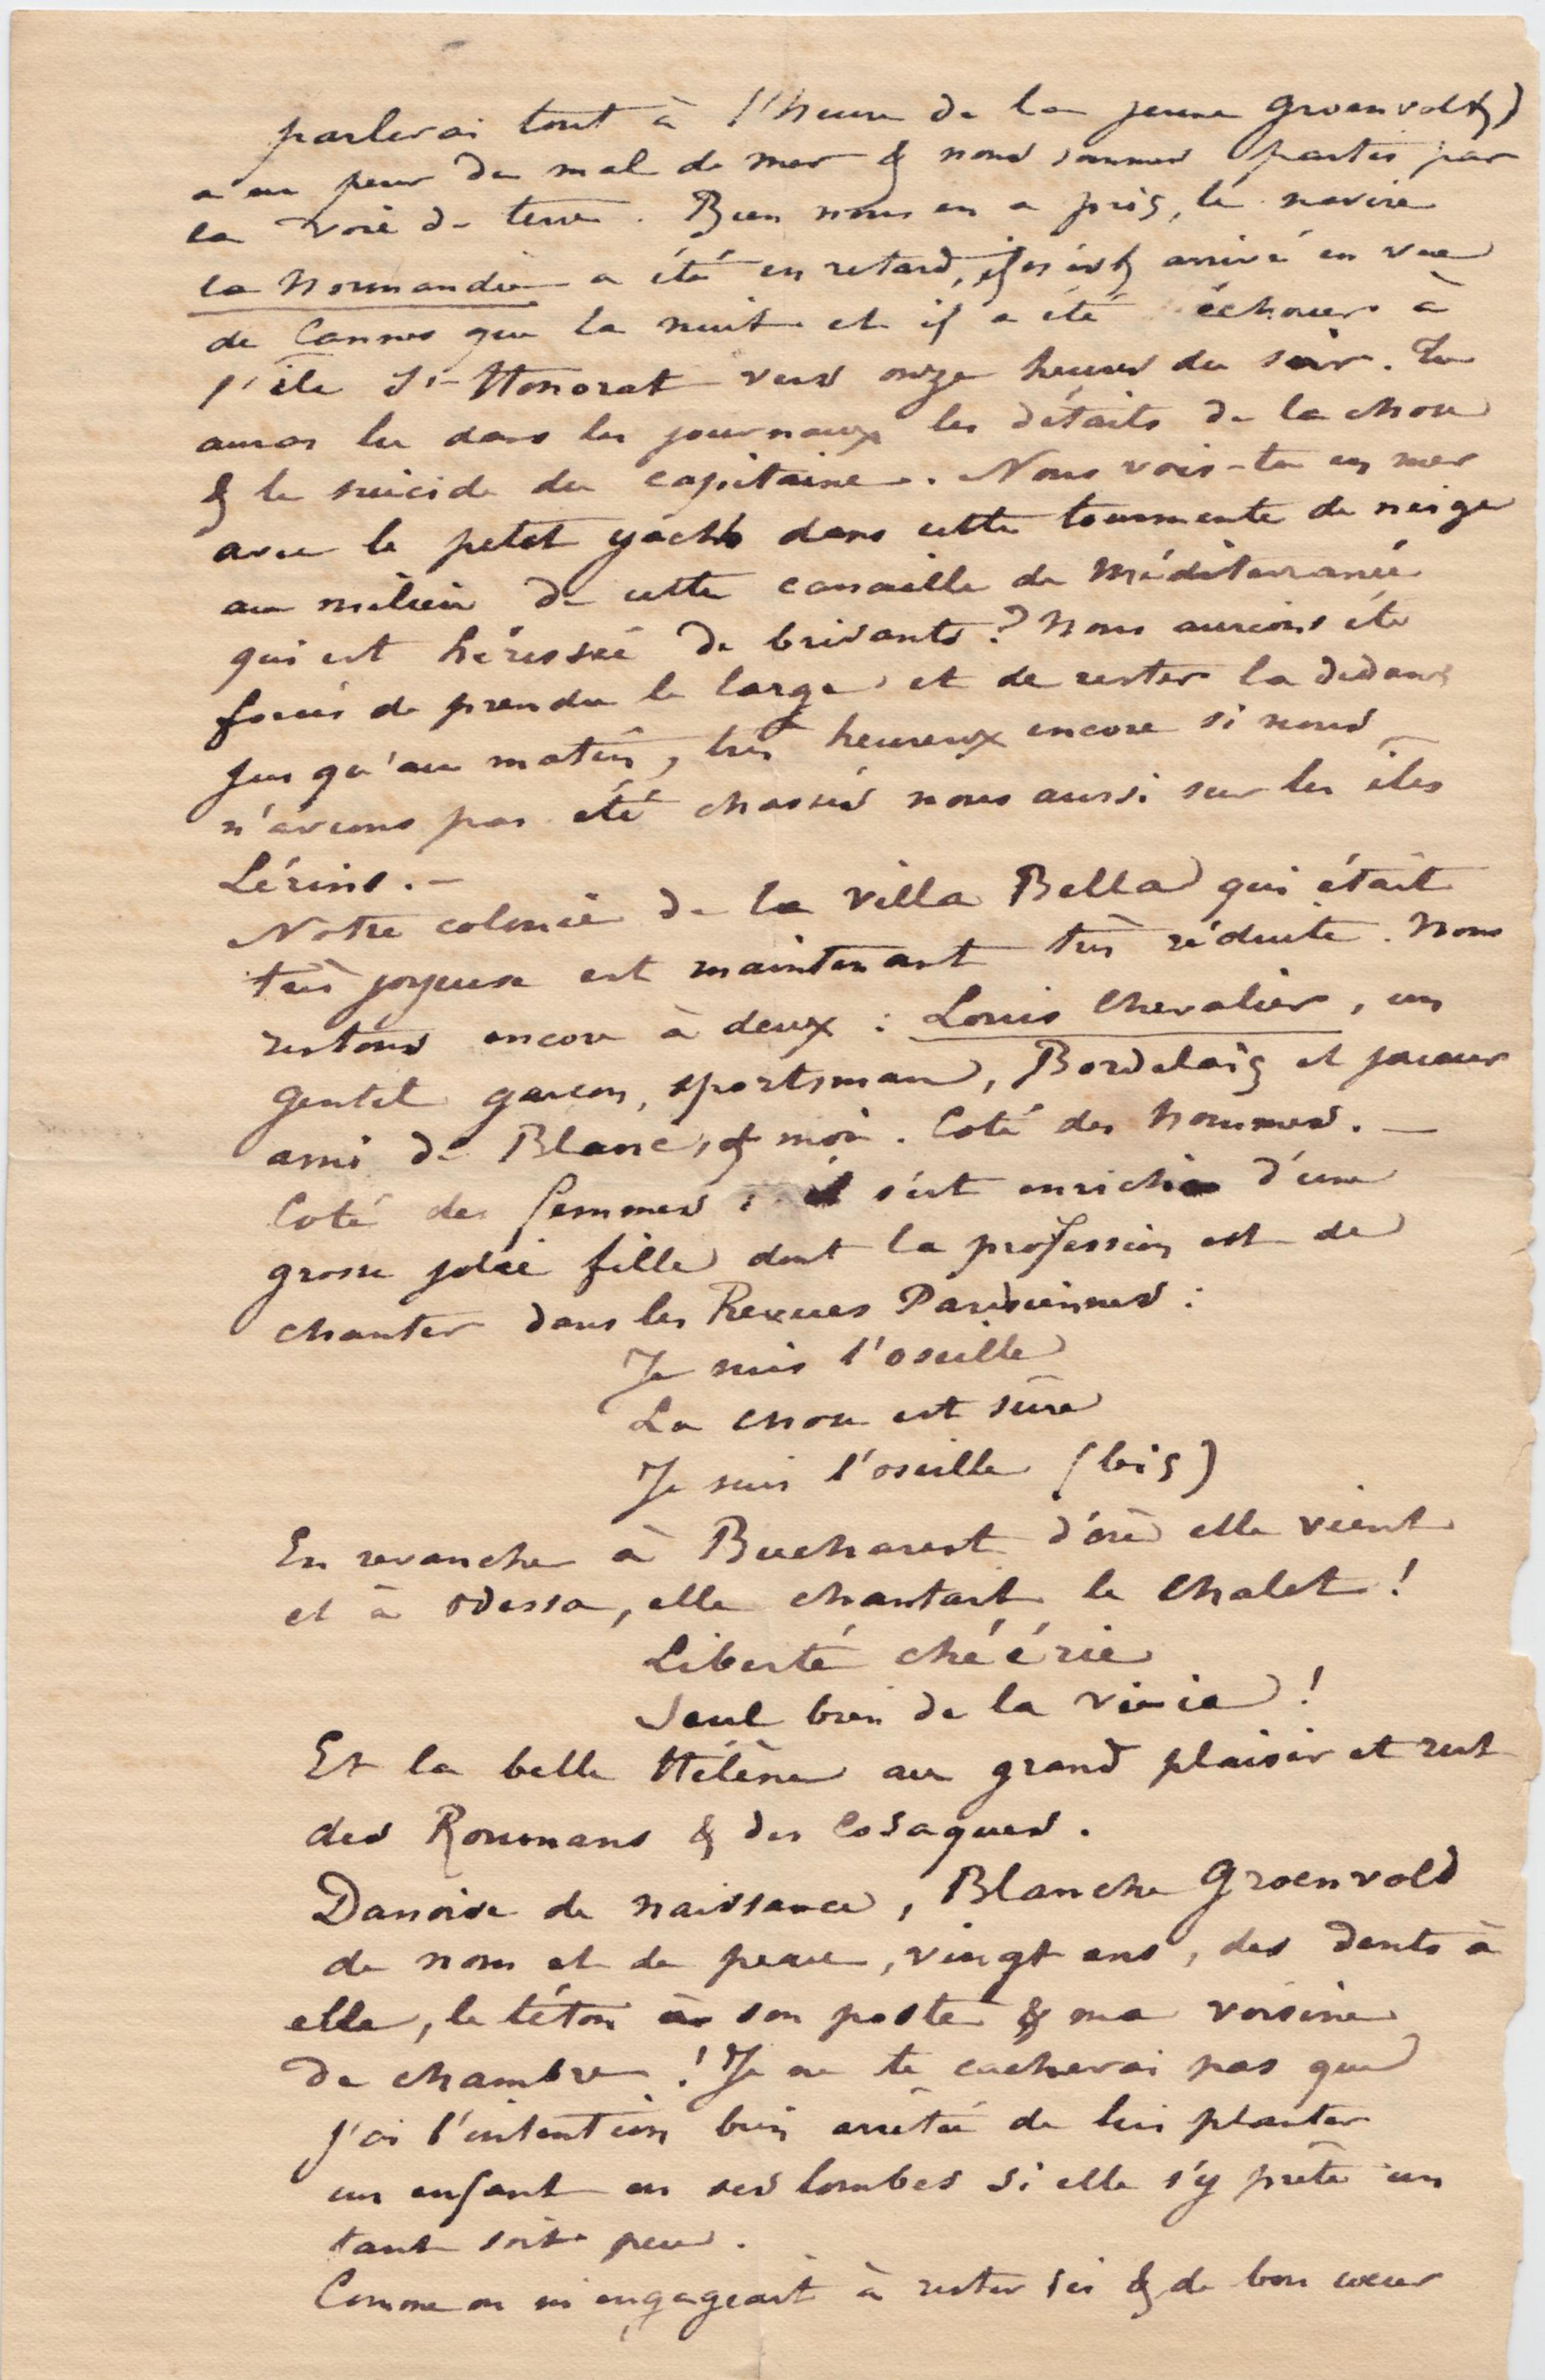 parlerai tout à l'heure de la jeune Groenvold)
a eu peur du mal de mer & nous sommes partis par
la voie de terre. Bien nous en a pris, le navire
la Normandie a été en retard, il n'est arrivé en vue
de Cannes que la nuit et il a été échouer à
l'île St-Honorat vers onze heures du soir. Tu
auras lu dans les journaux les détails de la chose
& le suicide du capitaine. Nous vois-tu en mer
avec le petit yacht dans cette tourmente de neige
au milieu de cette canaille de Méditerranée
qui est hérissée de brisants? Nous aurions été
forcés de prendre le large et de rester la dedans
jusqu'au matin, très heureux encore si nous
n'avions pas été chassés nous aussi sur les îles
Lérins. –
Notre colonie de la villa Bella qui était
très joyeuse est maintenant très réduite. Nous
restons encore à deux : Louis Chevalier, un
gentil garçon, sportsman, Bordelais et joueur
ami de Blanc, & moi. Coté des hommes. –
Coté des femmes : il s'est enrichi d'une
grosse jolie fille dont la profession est de
chanter dans les Revues Parisiennes :
Je suis l'oseille
La chose est sûre
Je suis l'oseille (bis)
En revanche à Bucharest d'où elle vient
et à Odessa, elle chantait le Chalet !
Liberté chéérie
Seul bien de la viie !
Et la belle Hélène au grand plaisir et rut
des Roumans & des Cosaques.
Danoise de naissance, Blanche Groenvold
de nom et de peau, vingt ans, des dents à
elle, le téton à son poste & ma voisine
de chambre ! Je ne te cacherai pas que
j'ai l'intention bien arrêtée de lui planter
un enfant en ses lombes si elle s'y prête un
tant soit peu.
Comme on m'engageait à rester ici & de bon coeur